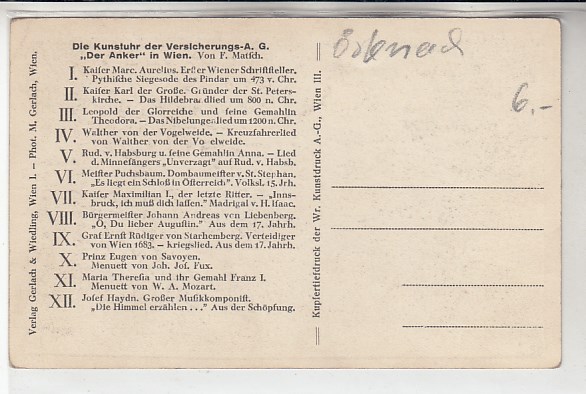 Die Kunstuhr der Versicherungs-A. G.
„Der Anker" in Wien. Von F. Matsch.
I. Kaiser Marc. Aurelius. Erster Wiener Schriftsteller.
Pythische Siegesode des Pindar um 473 v. Chr.
II. Kaiser Karl der Große. Gründer der St. Peters-
kirche. — Das Hildebra dlied um 800 n. Chr.
III. Leopold der Glorreiche und seine Gemahlin
Theodora. — Das Nibelungenlied um 1200 n. Chr.
IV. Walther von der Vogelweide. — Kreuzfahrerlied
von Walther von der Vo elweide.
V. Rud. v. Habsburg u. seine Gemahlin Anna. — Lied
d. Minnesängers „Unverzagt" auf Rud. v. Habsb.
VI. Meister Puchsbaum, Dombaumeister v. St. Stephan,
„Es liegt ein Schloß in Österreich". Volksl. 15. Jrh.
VII. Kaiser Maximilian I., der letzte Ritter. — „Inns-
bruck, ich muß dich lassen." Madrigal v. H. Isaac.
VIII. Bürgermeister Johann Andreas von Liebenberg.
„O, Du lieber Augustin." Aus dem 17. Jahrh.
IX. Graf Ernst Rüdiger von Starhemberg. Verteidiger
von Wien 1683. — kriegslied. Aus dem 17. Jahrh.
X. Prinz Eugen von Savoyen.
Menuett von Joh. Jos. Fux.
XI. Maria Theresia und ihr Gemahl Franz I.
Menuett von W. A. Mozart.
XII. Josef Haydn. Großer Musikkomponist.
„Die Himmel erzählen . . ." Aus der Schöpfung.
Verlag Gerlach & Wiedling, Wien I. — Phot. M. Gerlach, Wien.
Kupfertiefdruck der Wr. Kunstdruck A.-G., Wien III.
6.-